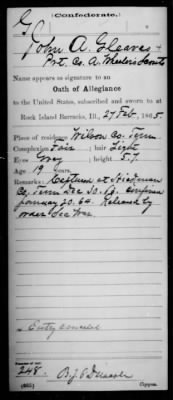 Confederate.
G
John A. Gleaves
Pvt. Co. A. Wheeler's Scouts
Name appears as signature to an
Oath of Allegiance
to the United States, subscribed and sworn to at
Rock Island Barracks, Ill., 27 Feby, 1865
Place of residence Wilson Co. Tenn.
Complexion Fair ; hair Light
Eyes Gray ; height 5.7.
Age 19 years.
Remarks: Captured at Hickman
Co, Tenn Dec 20. 63. Confined
January 20. 64. Released by
order Sec War.
Entry cancelled
Number of roll:
248
(665) Copyist.